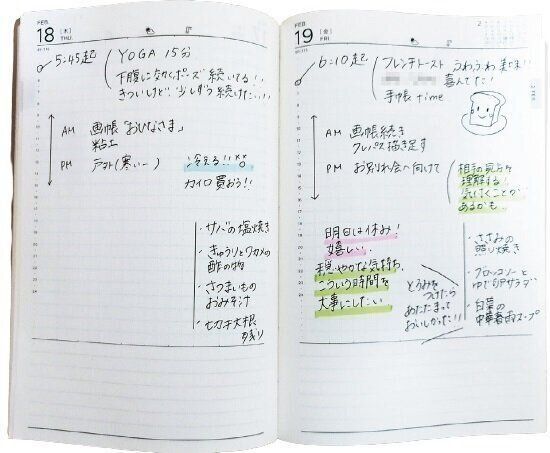 FEB.
18 [木]
THU.
5:45起
YOGA 15分
下腹に効くポーズ 続いてる!!
きついけど、少しずつ続けたい!!
AM 画帳「おひなさま」
粘土
PM (寒いー)
冷える!!
カイロ買おう!!
・サバの塩焼き
・きゅうりとワカメの
酢の物
・さつまいもの
おみそ汁
・切干大根
残り
FEB.
19 [金]
FRI.
6:10起
フレンチトースト うわうわ
喜んでた!
手帳 time
AM 画帳続き
クレパス描き足す
PM お別れ会へ向けて
相手の見方を
理解する!
気付くことが
あるかも
明日は休み!
嬉しい。
穏やかな気持ち
こういう時間を
大事にしたい
とろみを
つけたら
あたたまって
おいしかった!!
・ささみの
照り焼き
・ブロッコリーと
ゆで卵サラダ
・白菜の
中華春雨スープ